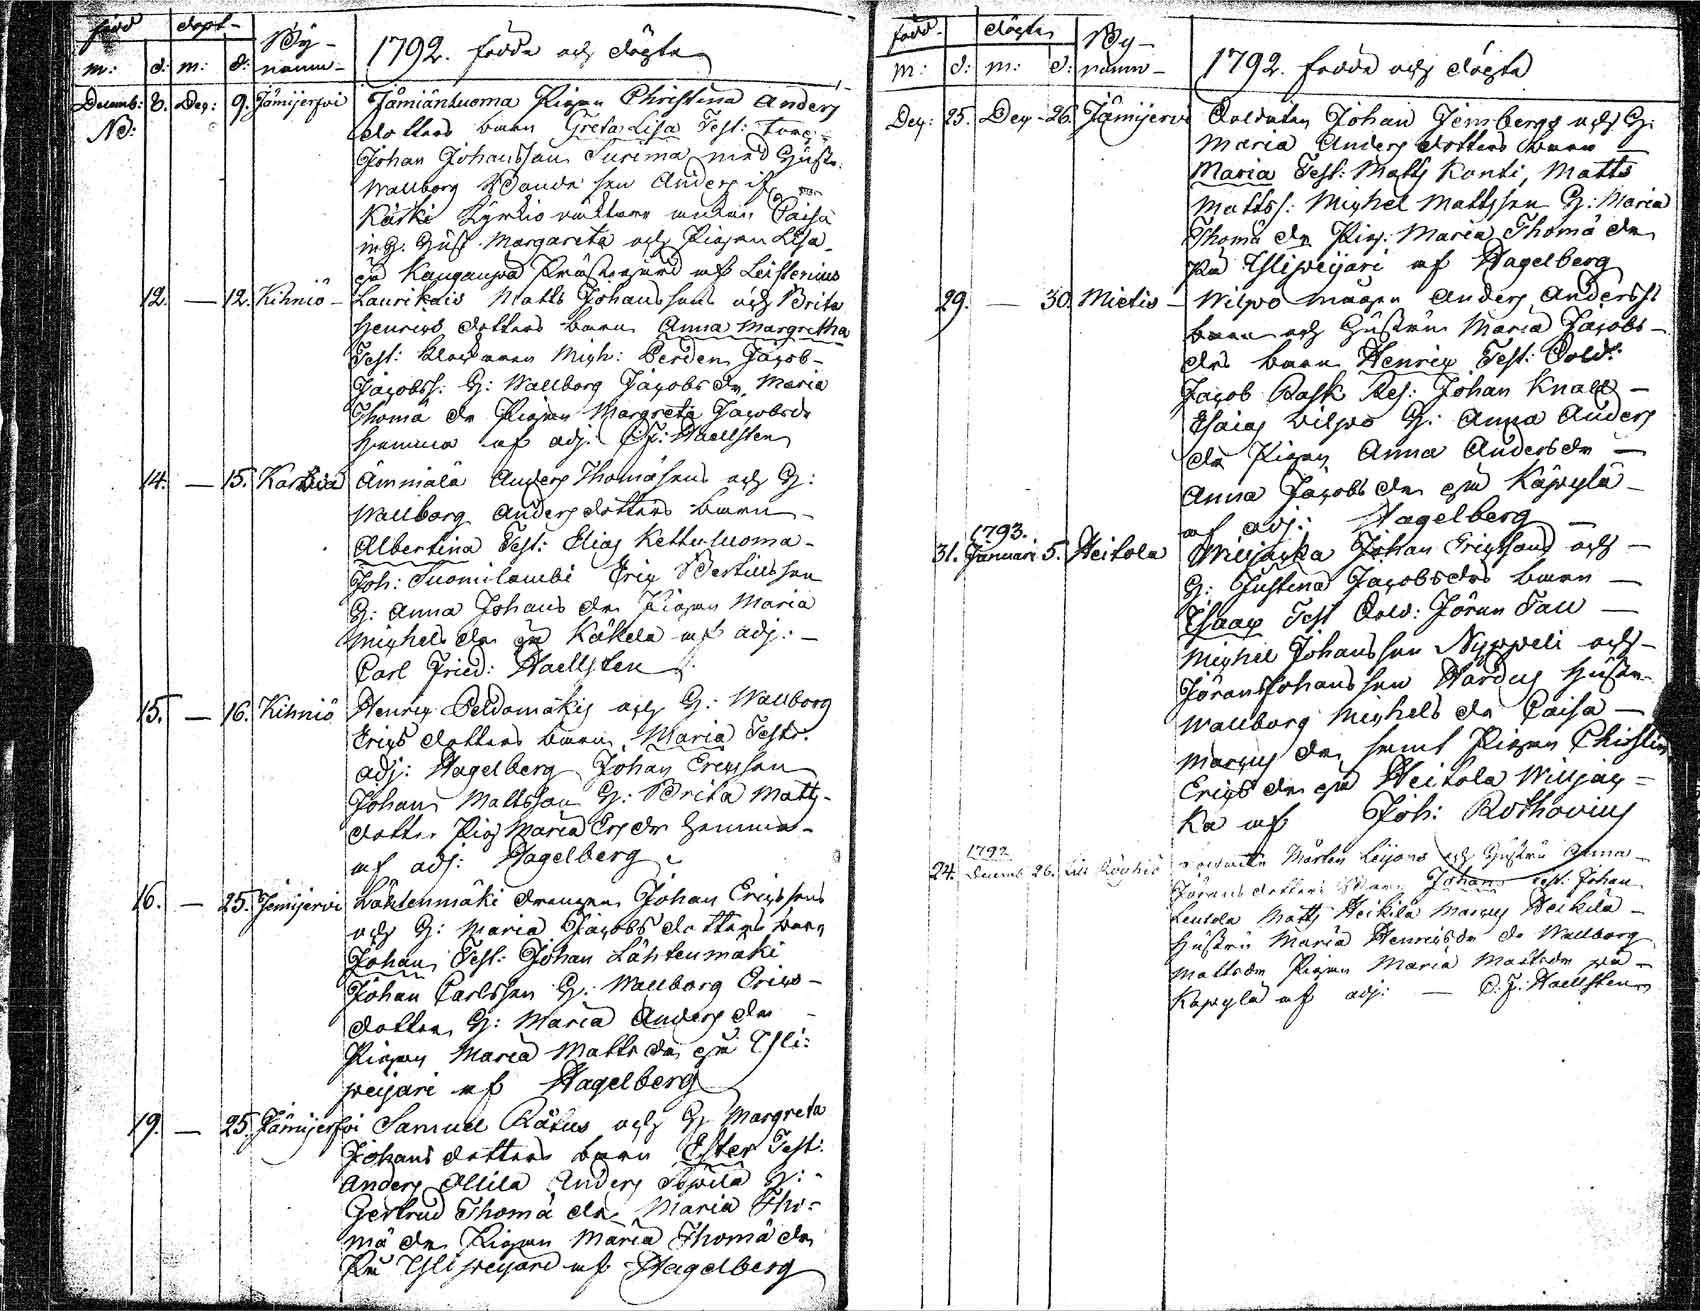 född döpt By-
m: d: m: d: namn- 1792. födde och döpte
Decemb: 8. Dec: 9. Jämijerfvi Jämiänluoma Pigan Christina Anders
Nb: dotters barn Greta Lisa Test:
Johan Johansson Surima med Hustr:
Wallborg Anders
Käski Caisa
Hust Margareta och Pigan Lisa
på Kanganpä af Leistenius
12. — 12. Kihniö- Laurikais Matts Johanssons och Brita
Henrics dotters barn Anna Margretha
Test: klockaren Mich: Perden Jacob-
Jacobss: H: Wallborg Jacobs dr Maria
Thomä dr Pigan Margreta Jacobsdr
hemma af adj. C:F: Haellsten
14. — 15. Karvia Ämmälä Anders Thomässons och H:
Wallborg Anders dotters barn-
Albertina Test: Elias Kettuluoma-
Joh: Suomilambi Eric Bertilsson
H: Anna Johans dr Pigan Maria
Michels dr på Käkelä af adj:-
Carl Fried: Haellsten
15. — 16. Kihniö Henric Peldomäkis och H: Wallborg
Erics dotters barn Maria Test:
adj: Hagelberg Johan Ericsson
Johan Mattsson H: Brita Matts-
dotter Pig Maria Ers dr hemma-
af adj: Hagelberg
16. — 25. Jemijervi Lähtenmäki drengen Johan Ericssons
och H: Maria Jacobs dotters barn
Johan Test: Johan Lähtenmäki
Johan Carlsson H: Wallborg Erics-
dotter H: Maria Anders dr
Pigan Maria Matts dr på Yli:
weijari af Hagelberg
19. — 25. Jämijerfvi Samuel Rätus och H: Margreta
Johans dotters barn Ester Test:
Anders Ollila Anders H:
Gertrud Thomä dr Maria Tho-
mä dr Pigan Maria Thomä dr
På Yliweijari af Hagelberg
född- döpte By-
m: d: m: d: namn- 1792. födde och döpte
Dec: 25. Dec- 26. Jämijervi Soldaten Johan Jernbergs och H:
Maria Anders dotters barn
Maria Test: Matts Konti, Matts
Mattss: Michel Mattsson H: Maria
Thomä dr Pig: Maria Thomä dr
På Yliweijari af Hagelberg
29. — 30. Mietis- Wilpo mågen Anders Anderss:
barn och Hustrun Maria Jacobs-
drs barn Henric Test: Sold:
Jacob Rask Res: Johan Knall-
Esaias Wilpo H: Anna Anders
dr Pigan Anna Andersdr —
Anna Jacobs dr på Käpylä-
af adj: Hagelberg —
1793.
31. Januari 5. Heitola Wiljacka Johan Ericssons och-
H: Justina Jacobsdrs barn-
Isaac Test Sold: Jöran Tall —
Michel Johansson Nyppeli och-
Jöran Johansson Hardus Hustr-
Wallborg Michels dr Caisa —
Marcus dr samt Pigan Christina
Erics dr på Heitola Wiljac=
ka af Joh: Rothovius
1792
24. Decemb 26. Lill Soldaten Mårten Leijons och Hustru Anna-
Jörans dotters Barn Johan Test: Johan
Leutola Matts Heikilä Marcus Heikilä-
Hustru Maria Henricsdr do Wallborg
Mattsdr Pigan Maria Mattsdr på-
Käpylä af adj: — C:F: Haellsten